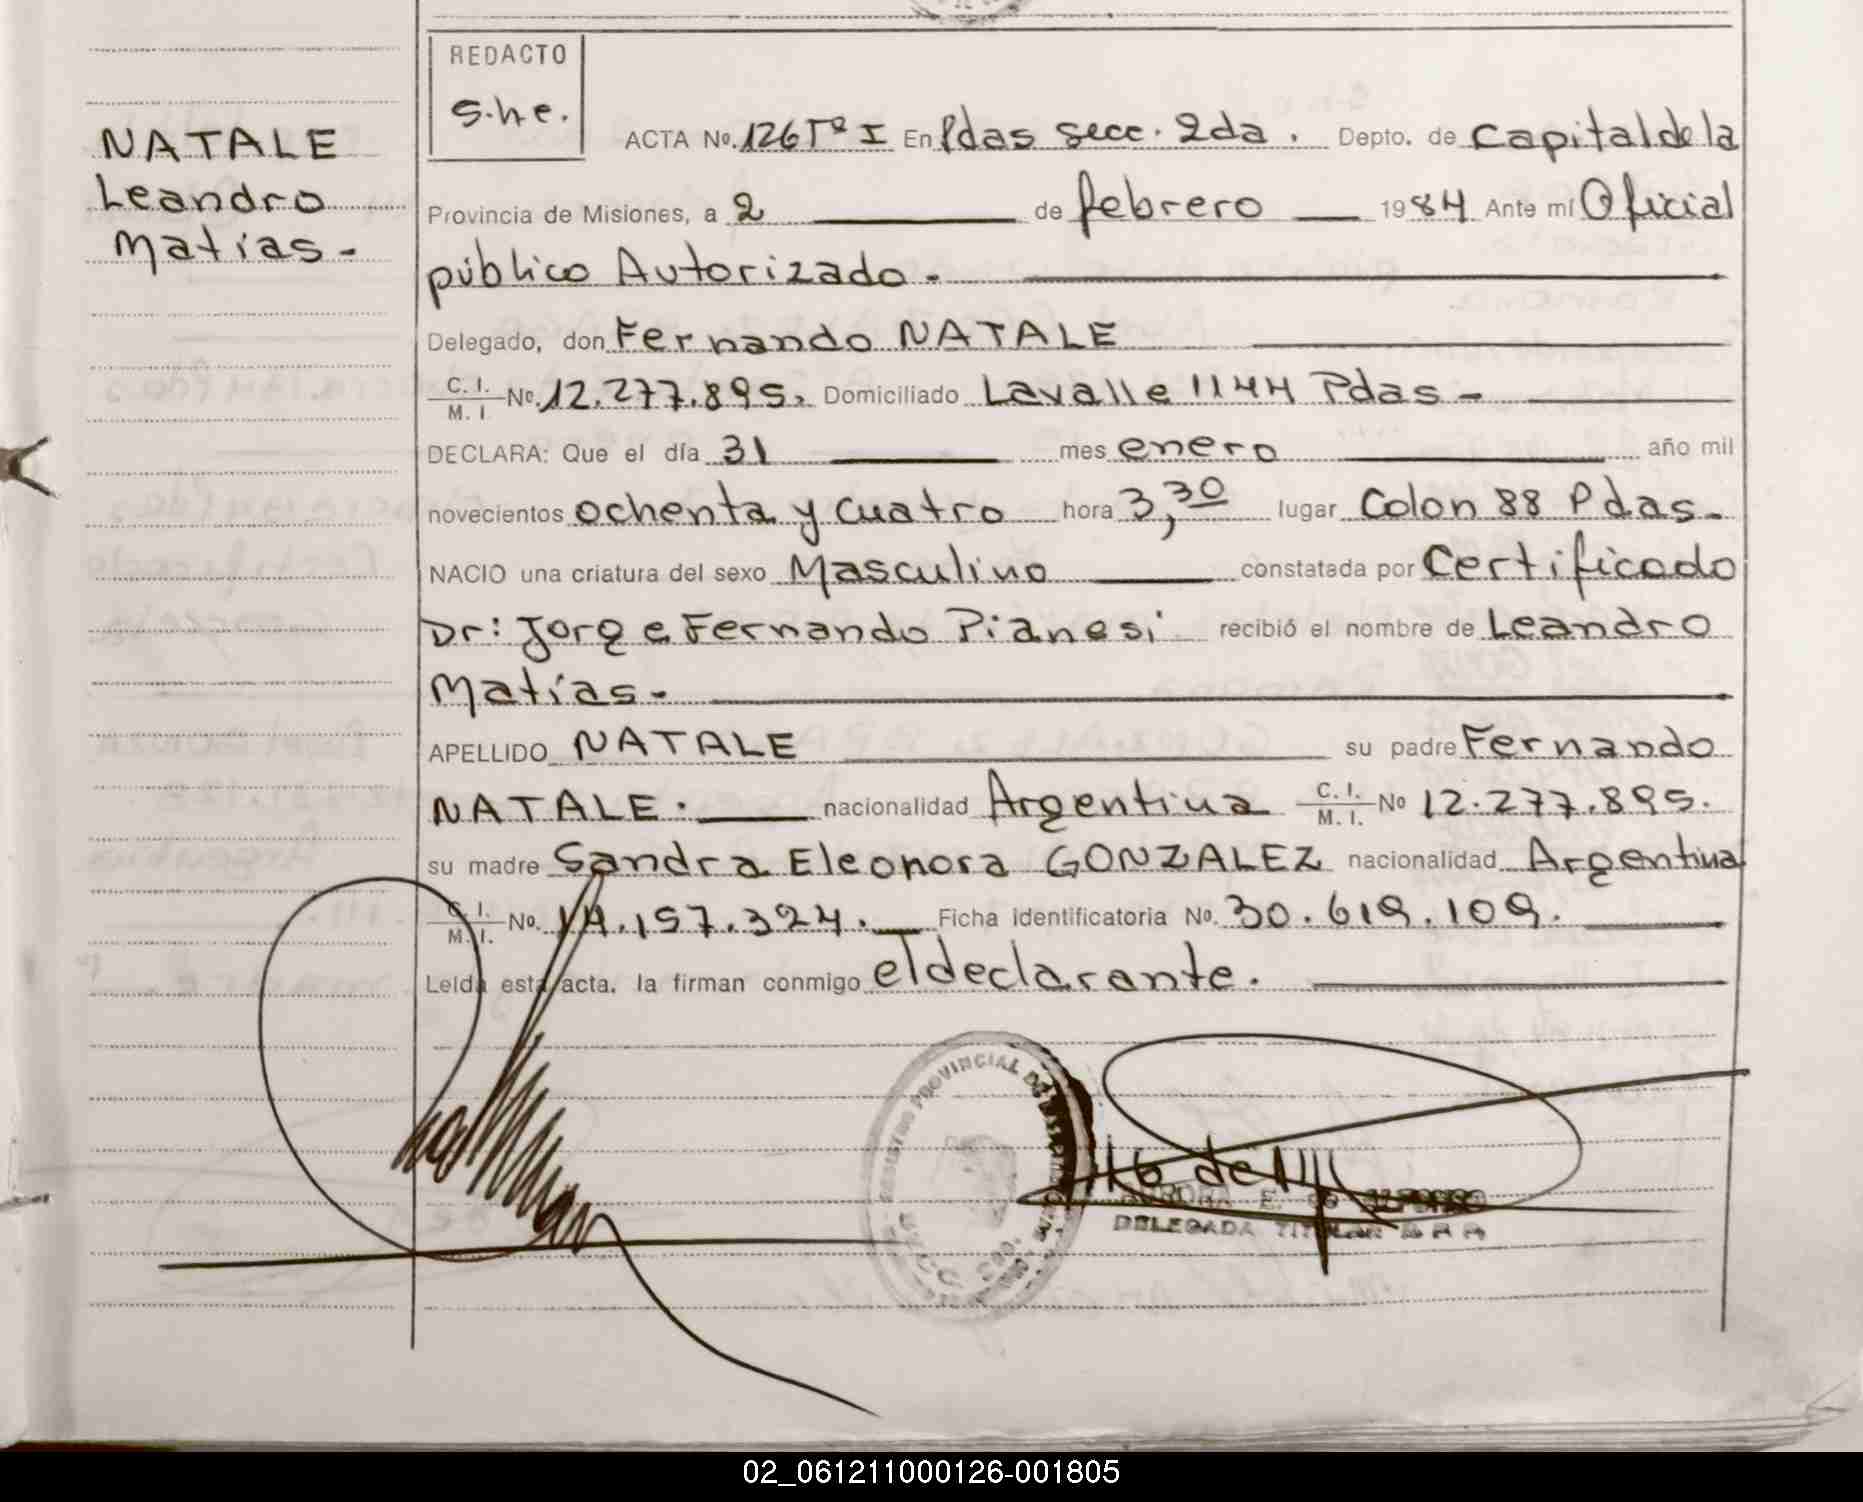 REDACTO
S.h.e.
NATALE
Leandro
Matías.-
ACTA No. 126 Tº I En Pdas secc. 2da. Depto. de Capital de la
Provincia de Misiones, a 2 de febrero 1984 Ante mí Oficial
público Autorizado.
Delegado, don Fernando NATALE
C. I. / M. I. No. 12.277.895. Domiciliado Lavalle 1144 Pdas-
DECLARA: Que el día 31 mes enero año mil
novecientos ochenta y cuatro hora 3,30 lugar Colon 88 Pdas.
NACIO una criatura del sexo Masculino constatada por Certificado
Dr: Jorge Fernando Pianesi recibió el nombre de Leandro
Matías.
APELLIDO NATALE su padre Fernando
NATALE. nacionalidad Argentina C. I. / M. I. No 12.277.895.
su madre Sandra Eleonora GONZALEZ nacionalidad Argentina
C. I. / M. I. No. 14.157.324. Ficha identificatoria No. 30.619.109.
Leída esta acta, la firman conmigo el declarante.
REGISTRO PROVINCIAL DE LAS PERSONAS
DELEGADA TITULAR
02_061211000126-001805